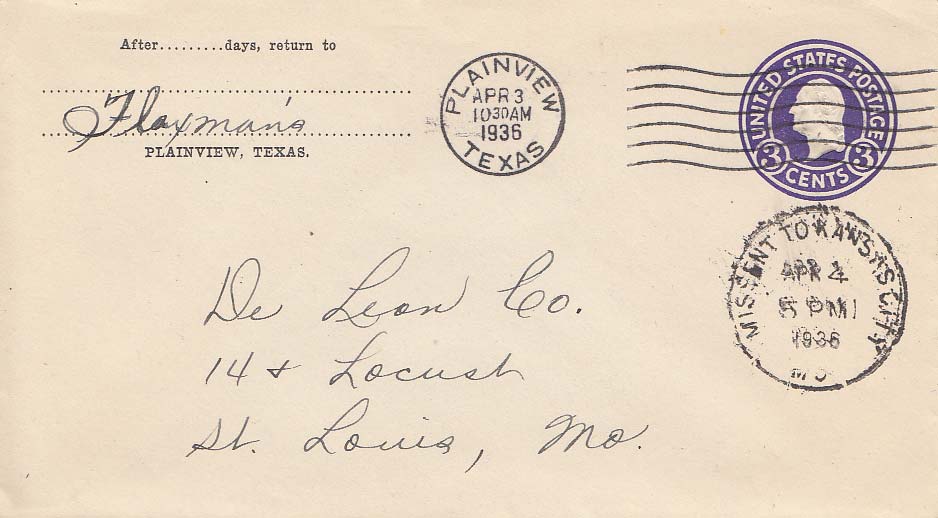 After.........days, return to
Flaxman's
PLAINVIEW, TEXAS.
PLAINVIEW
APR 3
10 30 AM
1936
TEXAS
UNITED STATES POSTAGE
3 3
CENTS
MISSENT TO KANSAS CITY
APR 4
5 PM
1936
MO
De Leon Co.
14 & Locust
St. Louis, Mo.